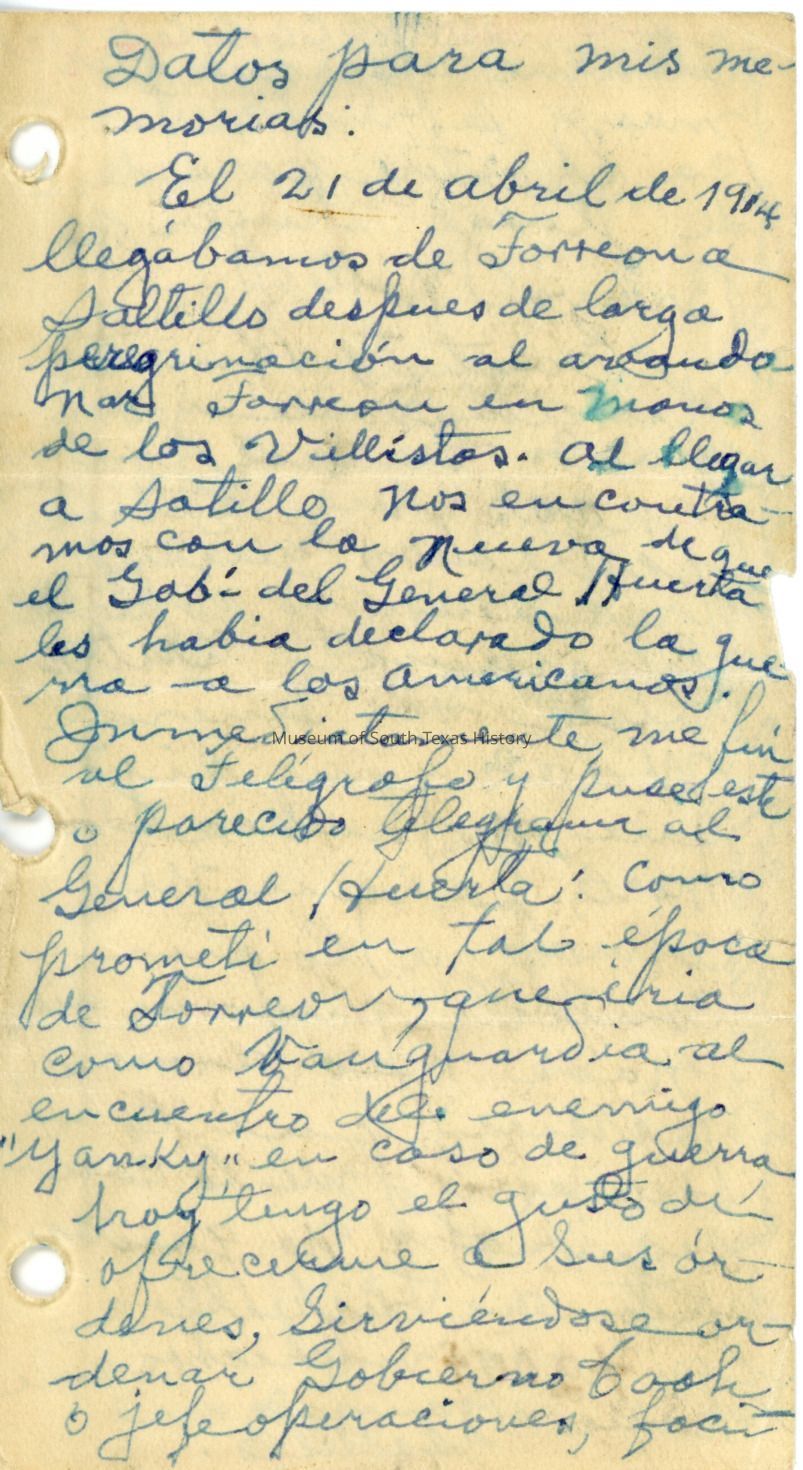 Datos para mis me-
morias:
El 21 de abril de 1914
llegábamos de Torreon a
Saltillo despues de larga
peregrinación al avando
nar Torreon en manos
de los Villístas. Al llegar
a Satillo nos encontra-
mos con la nueva de que
el Gob- del General Huerta
les habia declarado la gue-
rra a los Americanos.
Inmediatamente me fui
al Telégrafo y puse este
o parecido telegrama al
General Huerta: Como
prometi en tal época
de Torreon, que iria
como Vanguardia al
encuentro del enemigo
"Yanky" en caso de guerra
hoy tengo el gusto de
ofrecerme a sus ór-
denes, Sirviéndose or-
denar Gobierno Coah
ó jefe operaciones, faci-
Museum of South Texas History